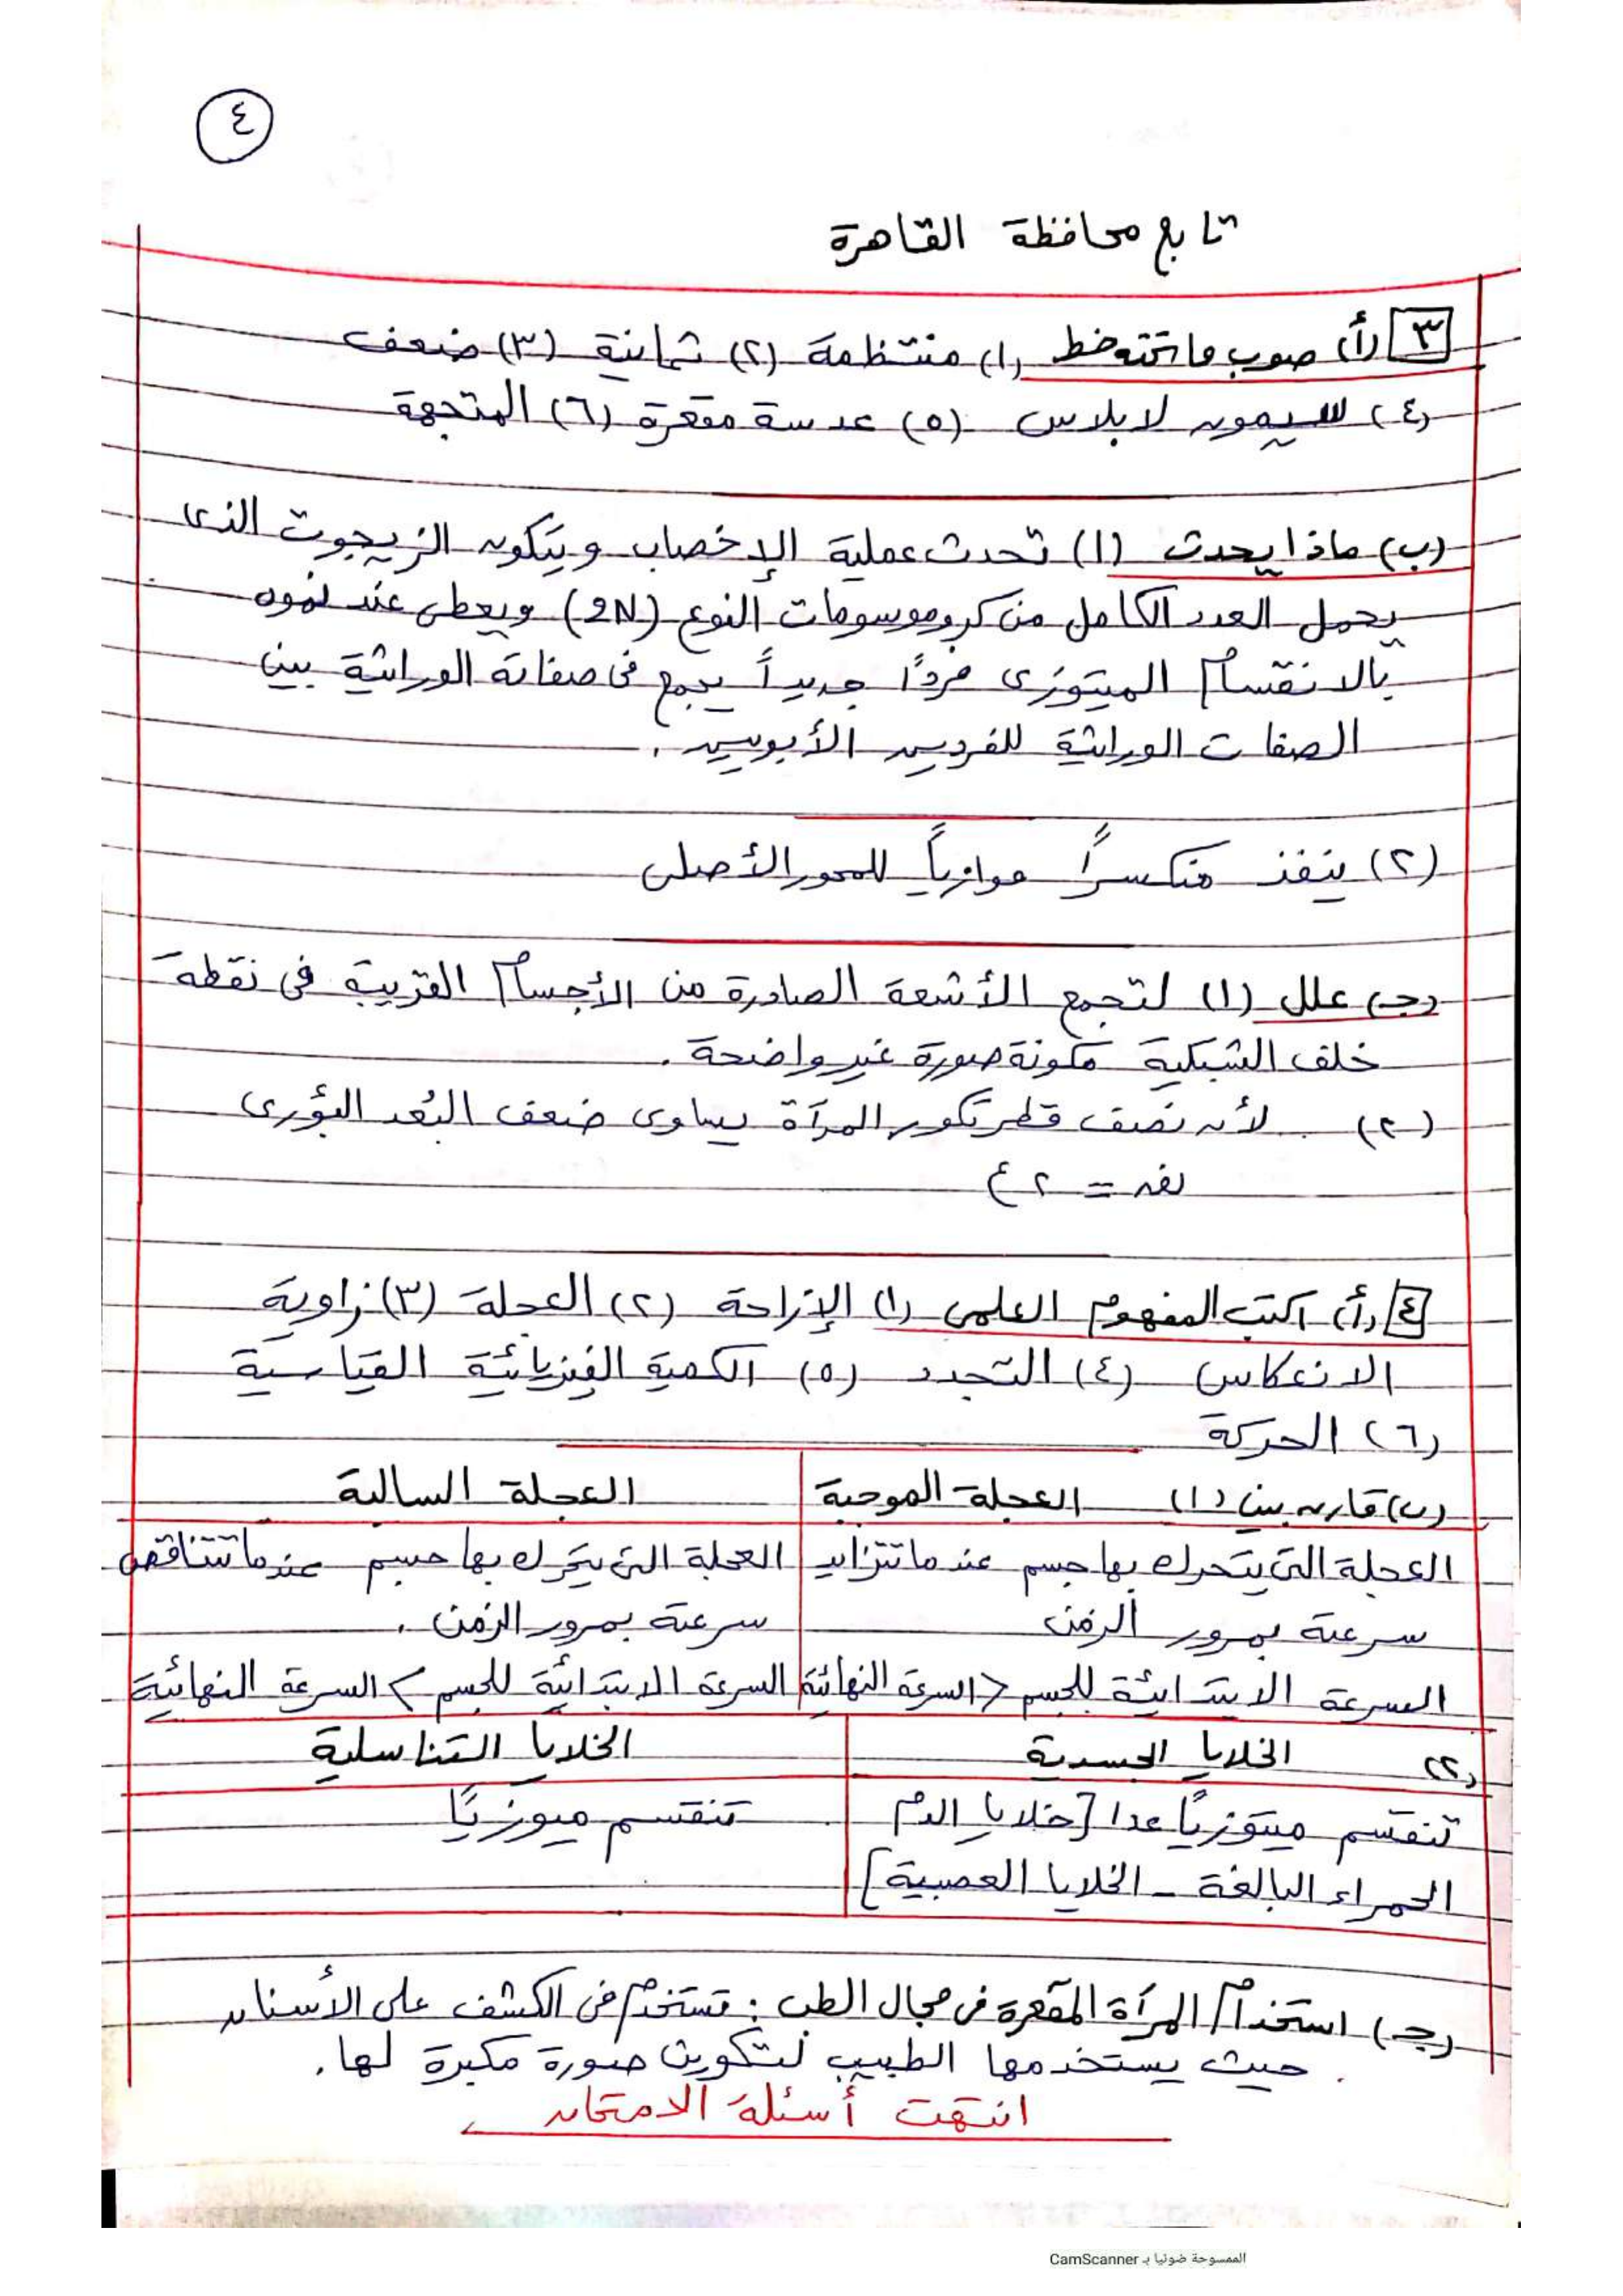 ٤
تابع محافظة القاهرة
٣ (أ) صوب ما تحته خط (١) منتظمة (٢) ثمانية (٣) ضعف
(٤) سيمون لابلاس (٥) عدسة مقعرة (٦) المتجهة
(ب) ماذا يحدث (١) تحدث عملية الإخصاب ويتكون الزيجوت الذى
يحمل العدد الكامل من كروموسومات النوع (2N) ويعطى عند نموه
بالانقسام الميتوزى فردًا جديداً يجمع فى صفاته الوراثية بين
الصفات الوراثية للفردين الأبويين.
(٢) ينفذ منكسرًا موازياً للمحور الأصلى
(جـ) علل (١) لتجمع الأشعة الصادرة من الأجسام القريبة فى نقطة
خلف الشبكية مكونة صورة غير واضحة.
(٢) لأن نصف قطر تكور المرآة يساوى ضعف البُعد البؤرى
نق = ٢ ع
٤ (أ) اكتب المفهوم العلمى (١) الإزاحة (٢) العجلة (٣) زاوية
الانعكاس (٤) التجدد (٥) الكمية الفيزيائية القياسية
(٦) الحركة
(ب) قارن بين (١) العجلة الموجبة العجلة السالبة
العجلة التى يتحرك بها جسم عندما تتزايد العجلة التى يتحرك بها جسم عندما تتناقص
سرعته بمرور الزمن سرعته بمرور الزمن.
السرعة الابتدائية للجسم < السرعة النهائية السرعة الابتدائية للجسم > السرعة النهائية
(٢) الخلايا الجسدية الخلايا التناسلية
تنقسم ميتوزيًا عدا [خلايا الدم تنقسم ميوزيًا
الحمراء البالغة - الخلايا العصبية]
(جـ) استخدام المرآة المقعرة فى مجال الطب : تستخدم فى الكشف على الأسنان
حيث يستخدمها الطبيب لتكوين صورة مكبرة لها.
انتهت أسئلة الامتحان
الممسوحة ضوئيا بـ CamScanner